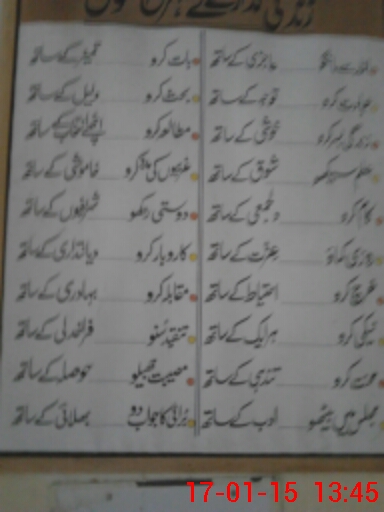 زندگی گذارنے کے بہترین اصول
عاجزی کے ساتھ
توجہ کے ساتھ
زندگی بسر کرو خوشی کے ساتھ
علم سیکھو شوق کے ساتھ
کام کرو دلجمعی کے ساتھ
روزی کماؤ عزت کے ساتھ
خرچ کرو احتیاط کے ساتھ
نیکی کرو ہر ایک کے ساتھ
محنت کرو تندہی کے ساتھ
مجلس میں بیٹھو ادب کے ساتھ
بات کرو تمیز کے ساتھ
بحث کرو دلیل کے ساتھ
مطالعہ کرو اچھے انتخاب کے ساتھ
غریبوں کی مدد کرو خاموشی کے ساتھ
دوستی رکھو شریفوں کے ساتھ
کاروبار کرو دیانتداری کے ساتھ
مقابلہ کرو بہادری کے ساتھ
تنقید سُنو فراخدلی کے ساتھ
مصیبت جھیلو حوصلے کے ساتھ
بُرائی کا جواب دو بھلائی کے ساتھ
17-01-15 13:45